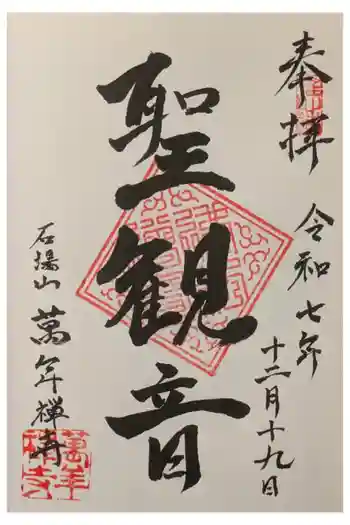 奉拝
令和七年
十二月十九日
聖観音
石場山
萬年禅寺
萬年
禅寺